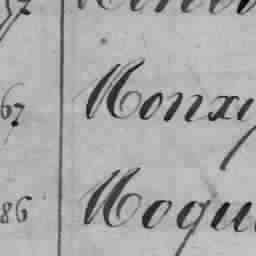 57
67 Monxy
86 Moqu